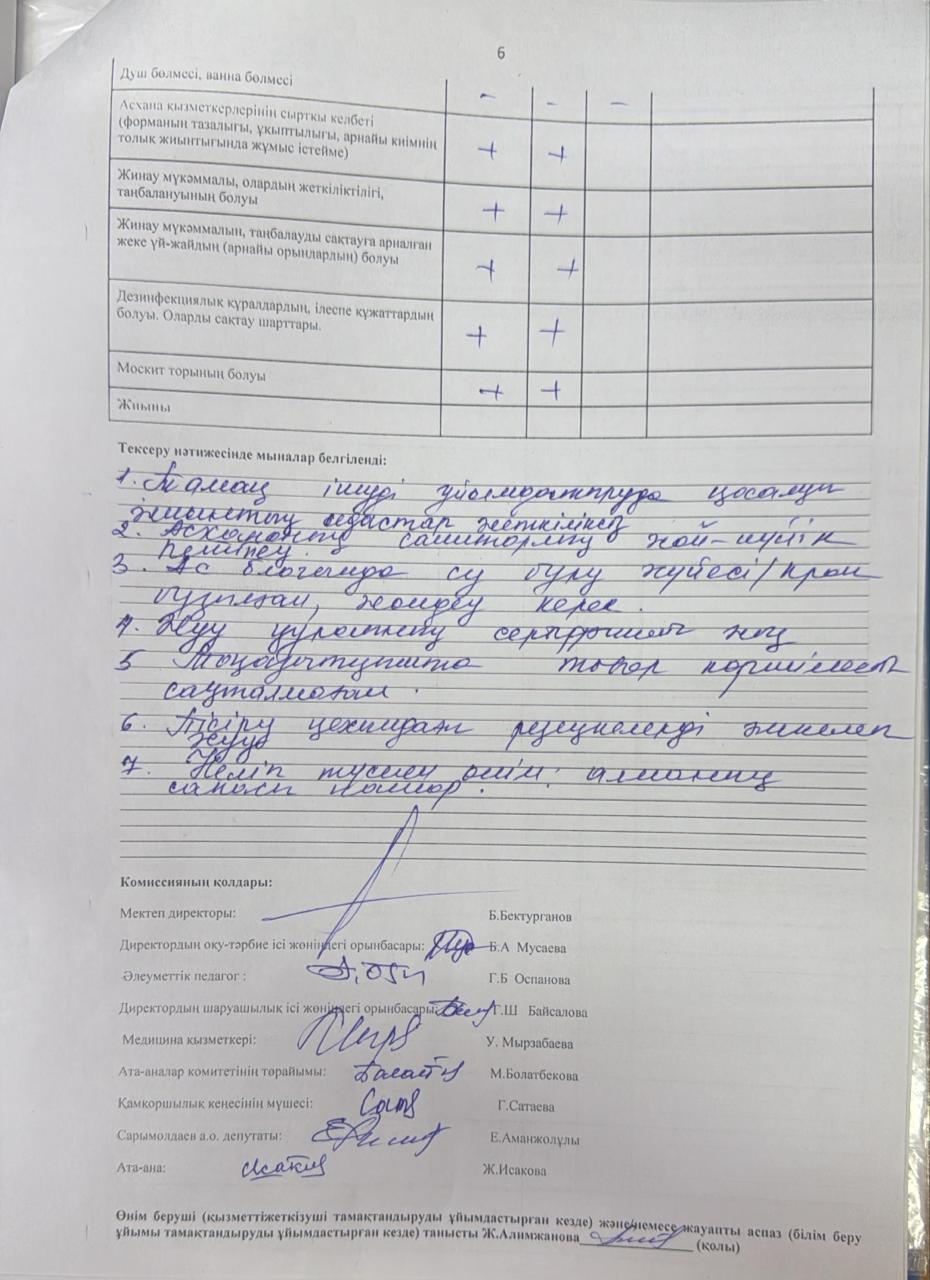 6
Душ бөлмесі, ванна бөлмесі
- - -
Асхана қызметкерлерінің сыртқы келбеті
(форманың тазалығы, ұқыптылығы, арнайы киімнің
толық жиынтығында жұмыс істейме)
+ +
Жинау мүкәммалы, олардың жеткіліктілігі,
таңбалануының болуы
+ +
Жинау мүкәммалын, таңбалауды сақтауға арналған
жеке үй-жайдың (арнайы орындардың) болуы
+ +
Дезинфекциялық құралдардың, ілеспе құжаттардың
болуы. Оларды сақтау шарттары.
+ +
Москит торының болуы
+ +
Жиыны
Тексеру нәтижесінде мыналар белгіленді:
1. Тамақ ішуді ұйымдастыруда қосалқы
ыдыстар жеткіліксіз
2. Асхананың санитарлық жай-күйі
3. Ас блогында су бұру жүйесі/кран
бұзылған, жөндеу керек.
4. Жуу құралының сертификат жоқ
5 товар көршілестігі
сақталмаған.
6. Пісіру цехындағы
жууда
7. Келіп түскен өнім: алманың
сапасы нашар.
Комиссияның қолдары:
Мектеп директоры: Б.Бектурганов
Директордың оқу-тәрбие ісі жөніндегі орынбасары: Б.А Мусаева
Әлеуметтік педагог : Г.Б Оспанова
Директордың шаруашылық ісі жөніндегі орынбасары: Г.Ш Байсалова
Медицина қызметкері: У. Мырзабаева
Ата-аналар комитетінің төрайымы: М.Болатбекова
Қамқоршылық кеңесінің мүшесі: Г.Сатаева
Сарымолдаев а.о. депутаты: Е.Аманжолұлы
Ата-ана: Исакив Ж.Исакова
Өнім беруші (қызметтіжеткізуші тамақтандыруды ұйымдастырған кезде) және/немесе жауапты аспаз (білім беру
ұйымы тамақтандыруды ұйымдастырған кезде) танысты Ж.Алимжанова
(қолы)